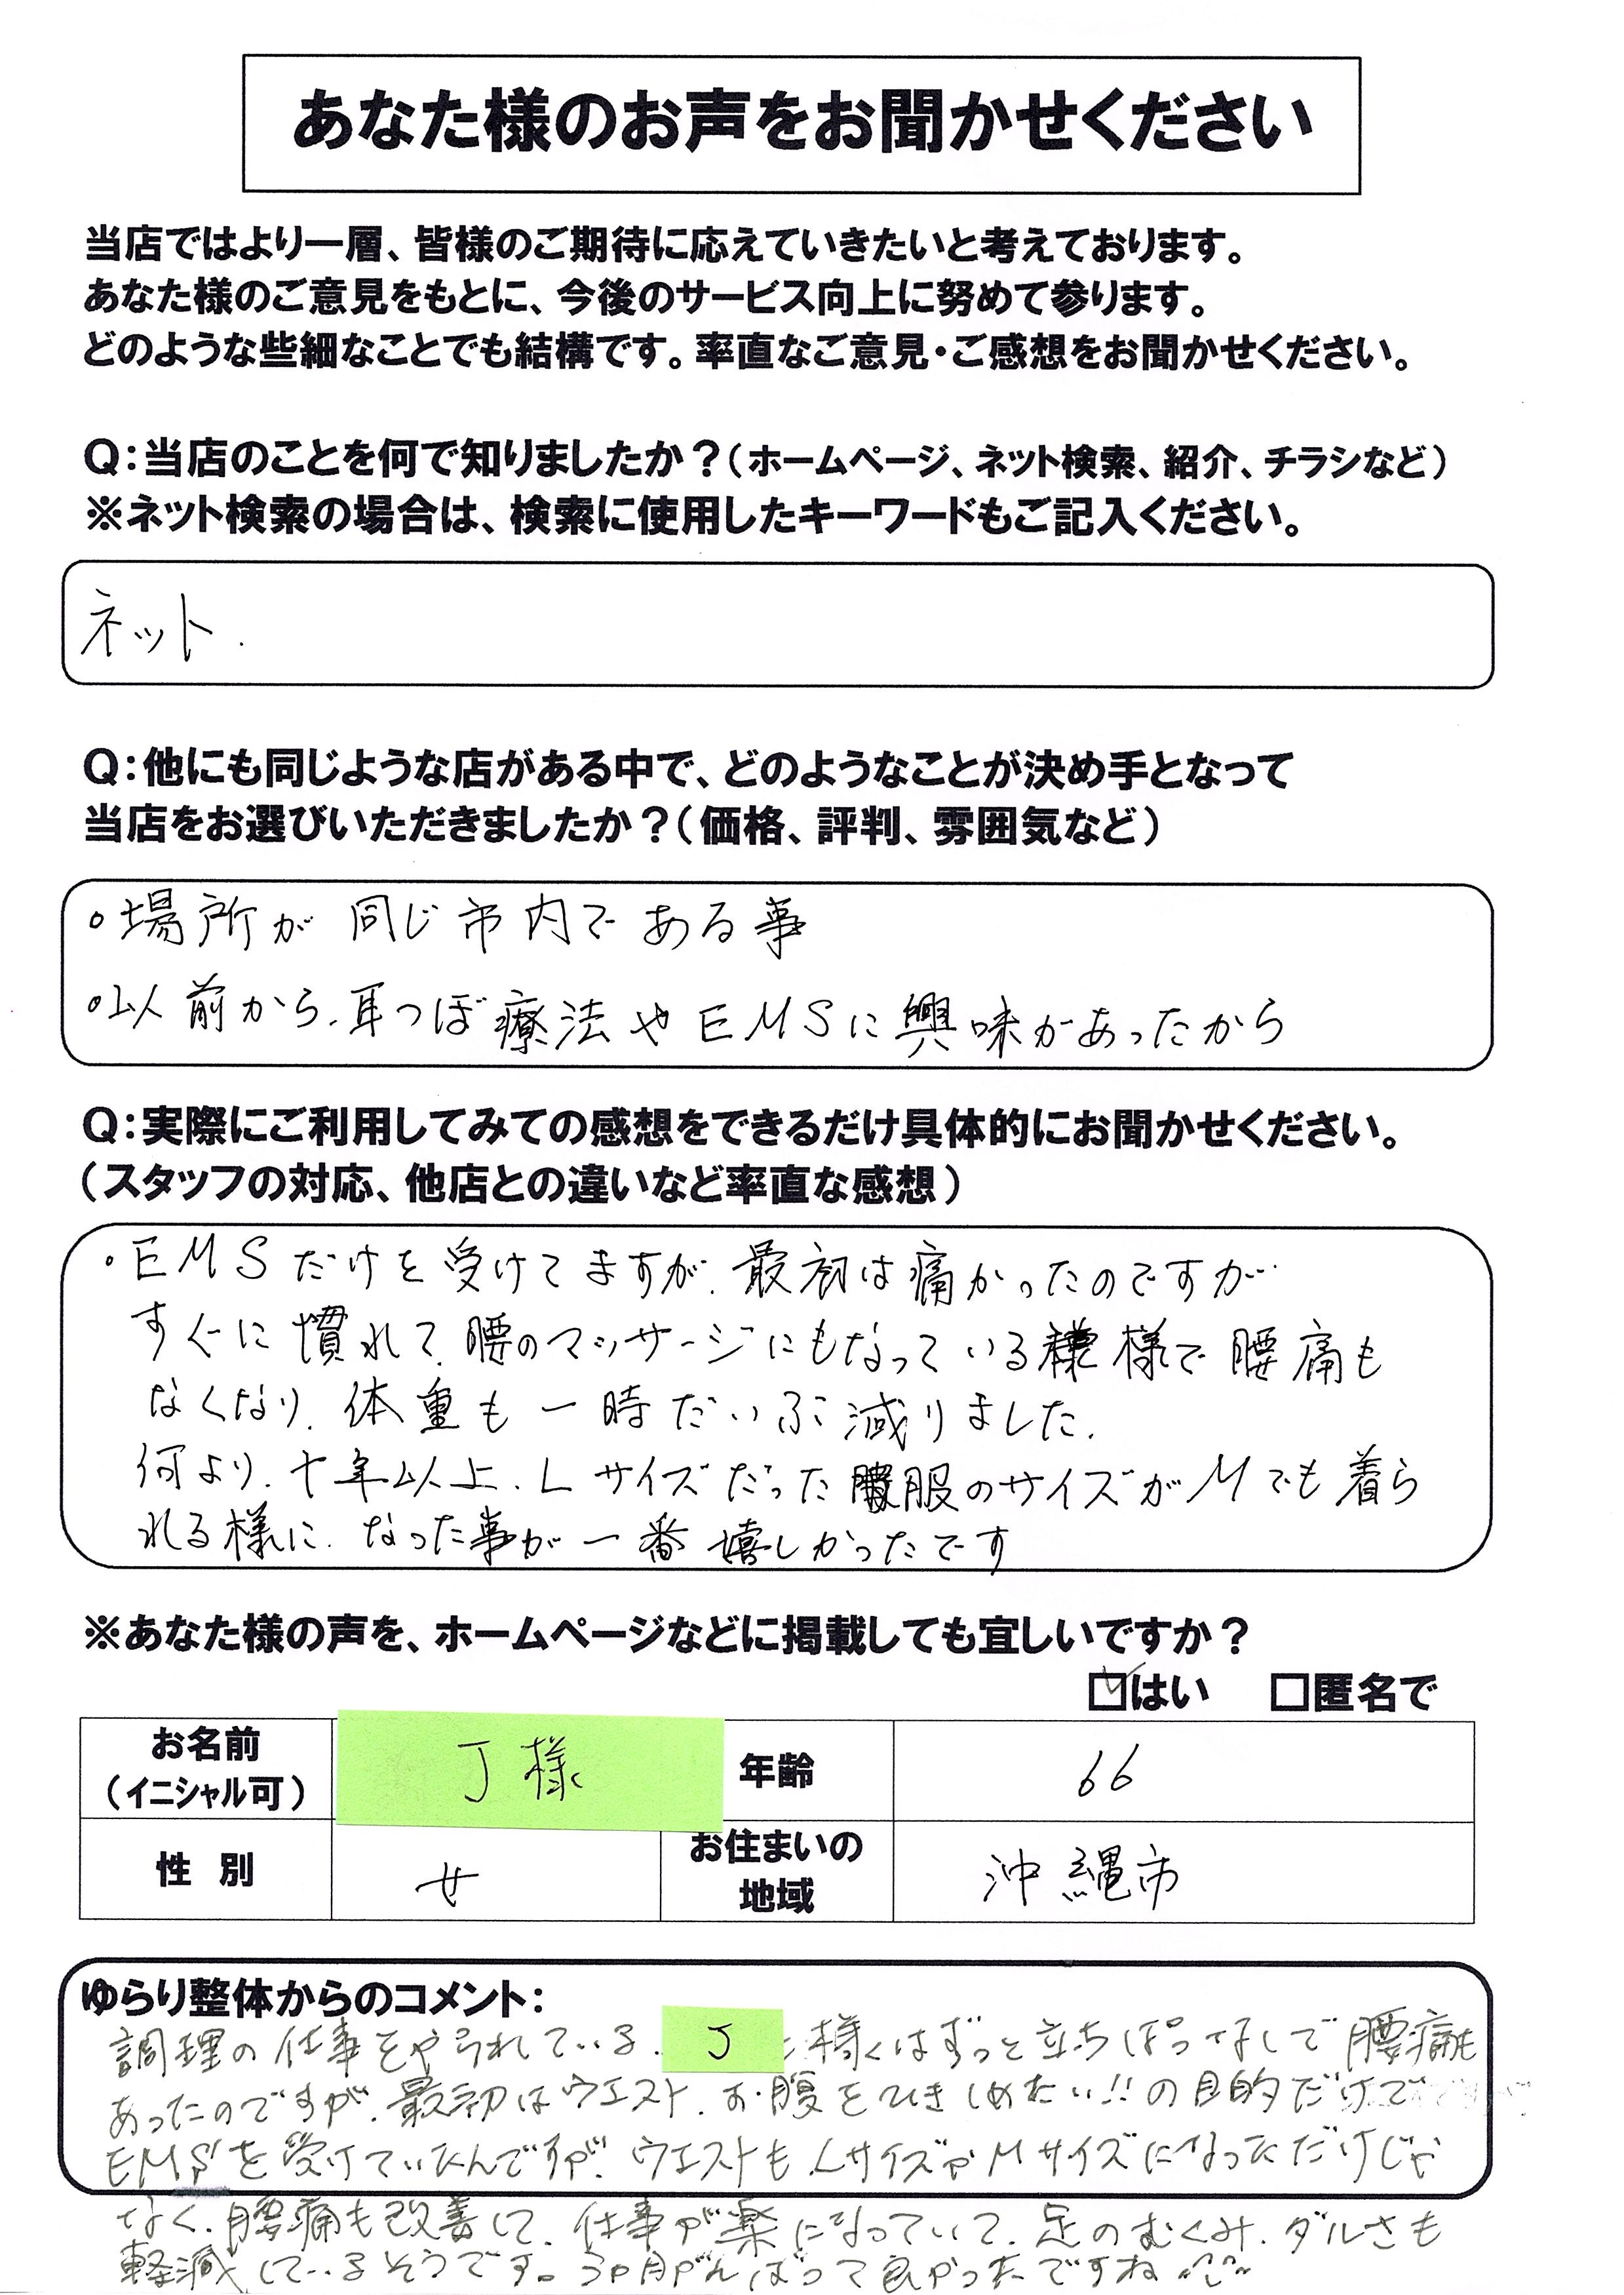 あなた様のお声をお聞かせください
当店ではより一層、皆様のご期待に応えていきたいと考えております。
あなた様のご意見をもとに、今後のサービス向上に努めて参ります。
どのような些細なことでも結構です。率直なご意見・ご感想をお聞かせください。
Q：当店のことを何で知りましたか？（ホームページ、ネット検索、紹介、チラシなど）
※ネット検索の場合は、検索に使用したキーワードもご記入ください。
ネット.
Q：他にも同じような店がある中で、どのようなことが決め手となって
当店をお選びいただきましたか？（価格、評判、雰囲気など）
○場所が同じ市内である事
○以前から、耳つぼ療法やEMSに興味があったから
Q：実際にご利用してみての感想をできるだけ具体的にお聞かせください。
（スタッフの対応、他店との違いなど率直な感想）
・EMSだけを受けてますが、最初は痛かったのですが
すぐに慣れて、腰のマッサージにもなっている様で腰痛も
なくなり、体重も一時だいぶ減りました.
何より、十年以上、Lサイズだった服のサイズがMでも着ら
れる様に、なった事が一番嬉しかったです
※あなた様の声を、ホームページなどに掲載しても宜しいですか？
☑はい　□匿名で
お名前
（イニシャル可）
J様
年齢
66
性別
女
お住まいの
地域
沖縄市
ゆらり整体からのコメント：
調理の仕事をやられている、J様はずっと立ちぱっなしで腰痛も
あったのですが、最初はウエスト、お腹をひきしめたい!!の目的だけで
EMSを受けていたんですが、ウエストもLサイズがMサイズになっただけじゃ
なく、腰痛も改善して、仕事が楽になっていて、足のむくみ、ダルさも
軽減しているそうです。3ヶ月がんばって良かったですね^^